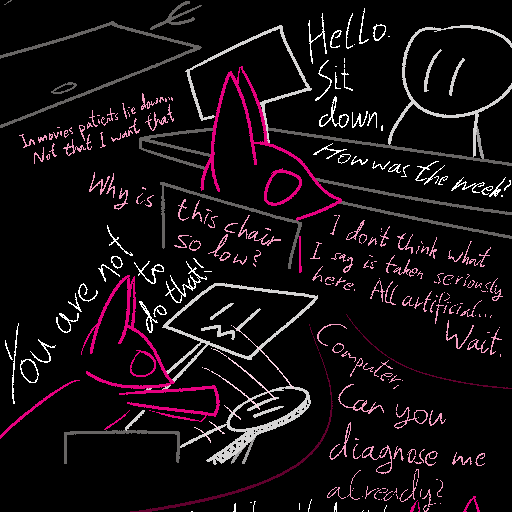 Hello.
Sit
down.
In movies patients lie down...
Not that I want that
How was the week?
Why is
this chair
so low?
I don't think what
I say is taken seriously
here. All artificial...
Wait.
You are not
to
do that!
Computer,
Can you
diagnose me
already?